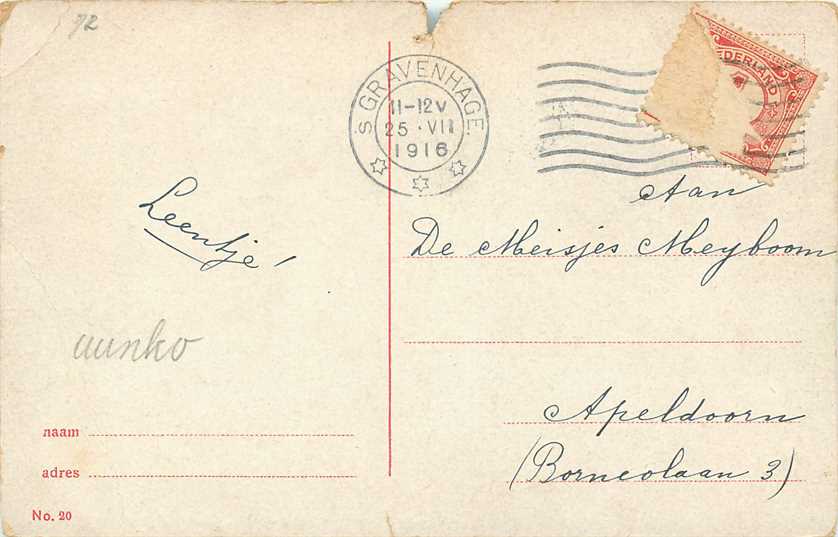 72
'S GRAVENHAGE.
11-12V
25.VII
1916
EDERLAND
Leentje!
aunko
Aan
De Meisjes Meyboom
Apeldoorn
(Borneolaan 3)
naam
adres
No. 20